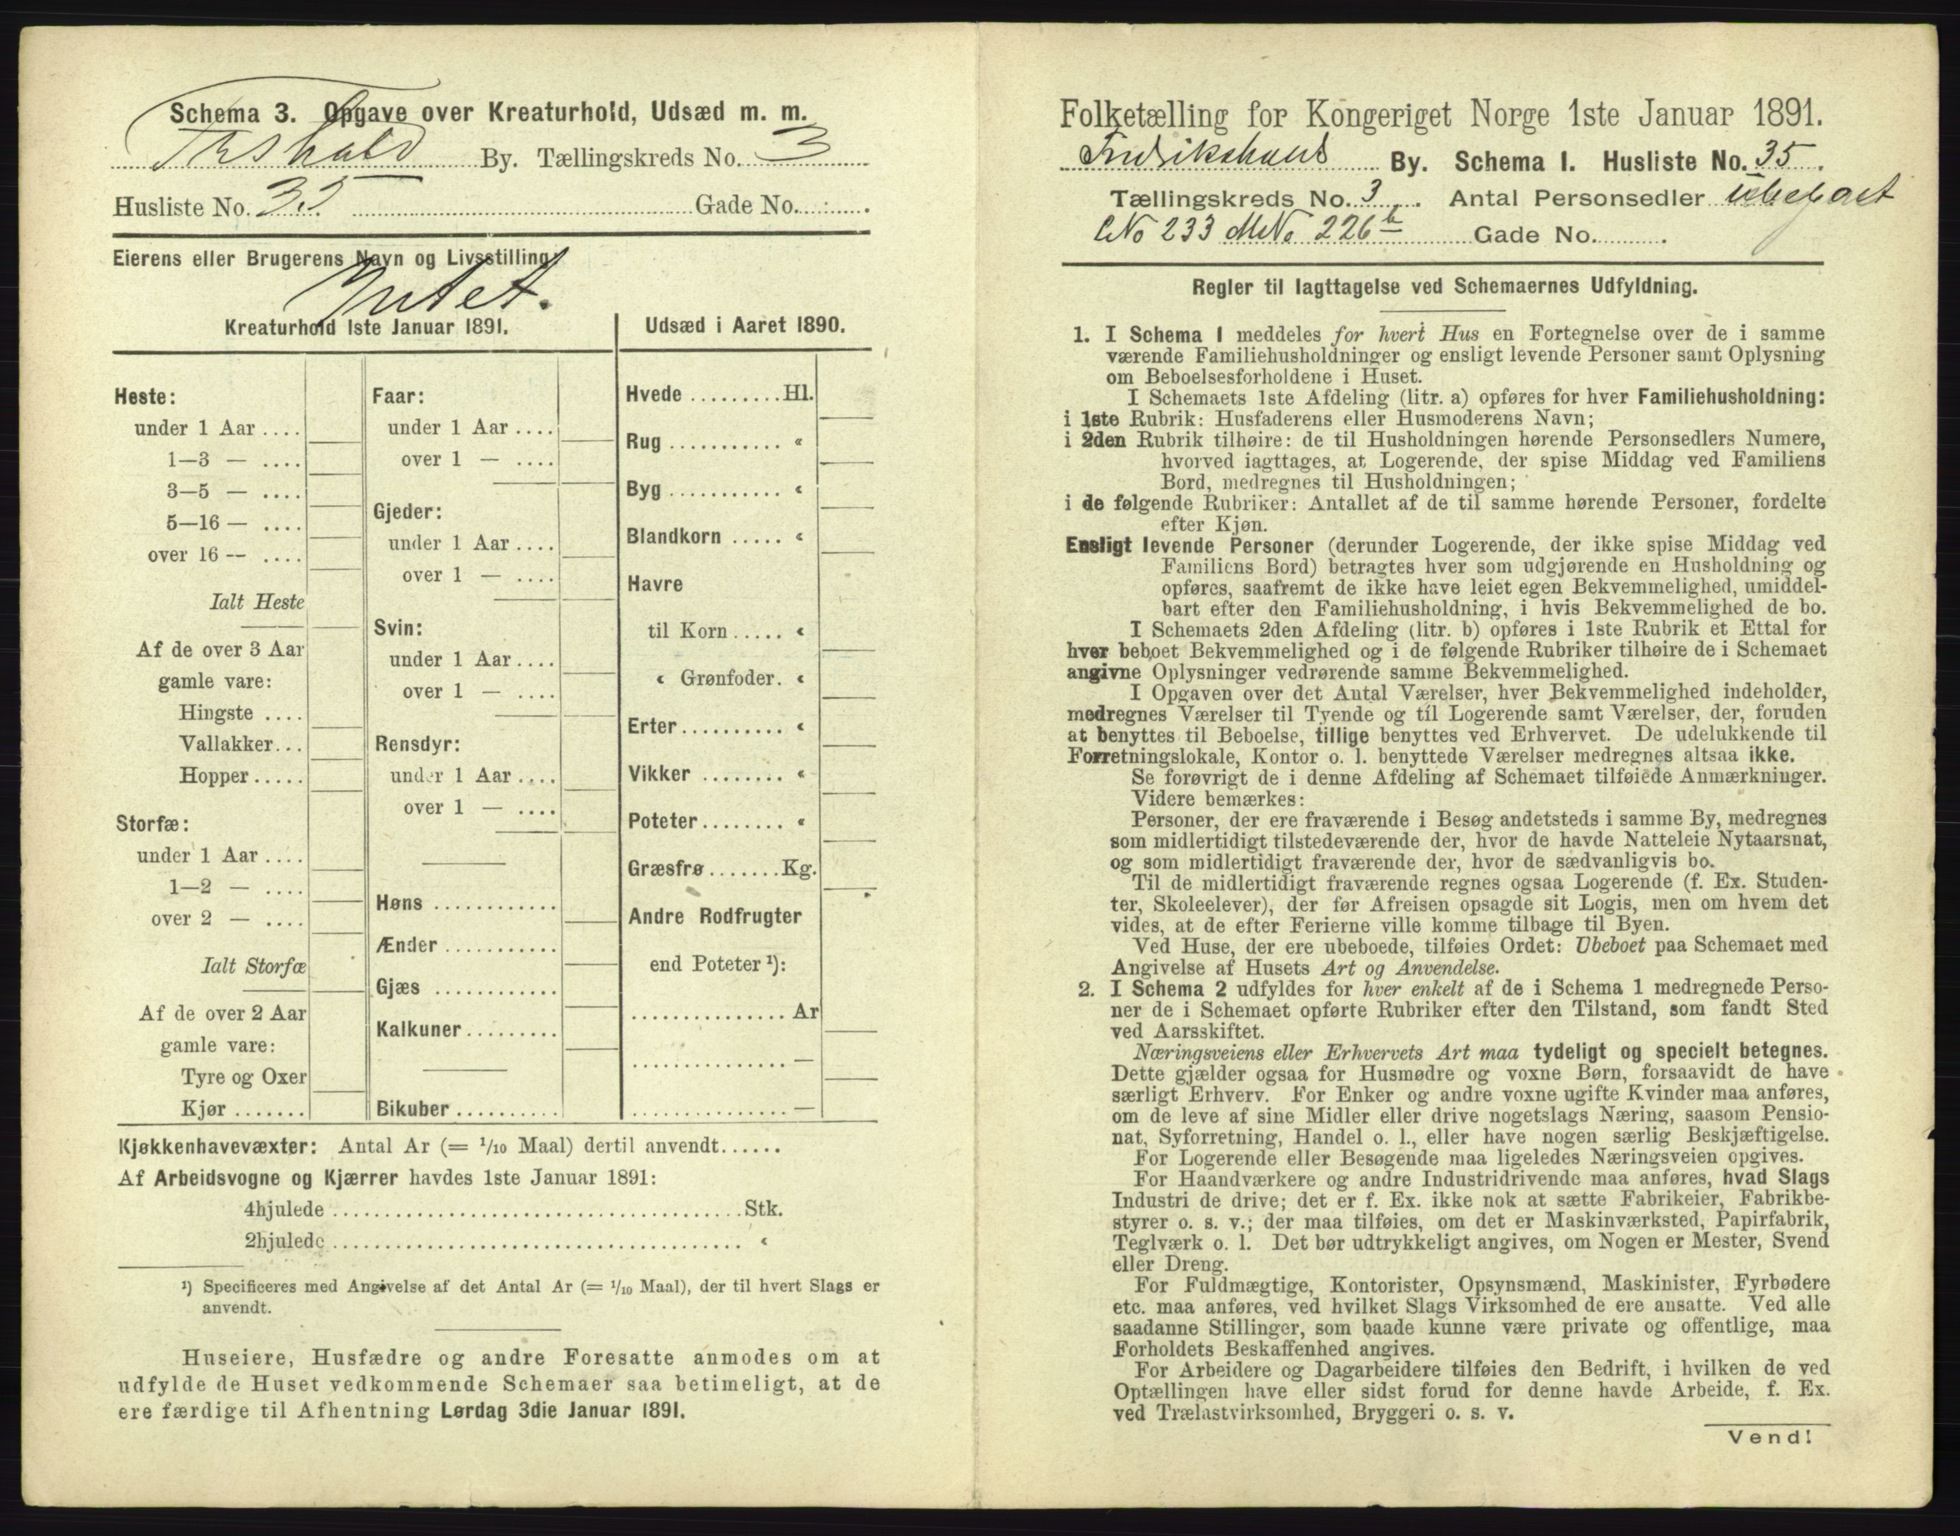 Schema 3. Opgave over Kreaturhold, Udsæd m. m.
Frshald By. Tællingskreds No. 3
Husliste No. 35 Gade No.
Eierens eller Brugerens Navn og Livsstilling:
Intet.
Kreaturhold 1ste Januar 1891.
Heste:
under 1 Aar ....
1—3 — ....
3—5 — ....
5—16 — ....
over 16 — ....
Ialt Heste
Af de over 3 Aar
gamle vare:
Hingste ....
Vallakker...
Hopper.....
Storfæ:
under 1 Aar ....
1—2 — ....
over 2 — ....
Ialt Storfæ
Af de over 2 Aar
gamle vare:
Tyre og Oxer
Kjør .......
Faar:
under 1 Aar ....
over 1 — ....
Gjeder:
under 1 Aar ....
over 1 — ....
Svin:
under 1 Aar ....
over 1 — ....
Rensdyr:
under 1 Aar ....
over 1 — ....
Høns ............
Ænder ...........
Gjæs ............
Kalkuner.........
Bikuber..........
Udsæd i Aaret 1890.
Hvede .........Hl.
Rug ........... «
Byg ........... «
Blandkorn ..... «
Havre
til Korn..... «
« Grønfoder. «
Erter .......... «
Vikker ........ «
Poteter........ «
Græsfrø .......Kg.
Andre Rodfrugter
end Poteter ¹):
............... Ar
............... —
............... —
Kjøkkenhavevæxter: Antal Ar (= 1/10 Maal) dertil anvendt......
Af Arbeidsvogne og Kjærrer havdes 1ste Januar 1891:
4hjulede ........................................Stk.
2hjulede ........................................ «
¹) Specificeres med Angivelse af det Antal Ar (= 1/10 Maal), der til hvert Slags er
anvendt.
Huseiere, Husfædre og andre Foresatte anmodes om at
udfylde de Huset vedkommende Schemaer saa betimeligt, at de
ere færdige til Afhentning Lørdag 3die Januar 1891.
Folketælling for Kongeriget Norge 1ste Januar 1891.
Fredrikshald By. Schema 1. Husliste No. 35.
Tællingskreds No. 3. Antal Personsedler ubeboet
CNo 233 MNo 226b Gade No.
Regler til Iagttagelse ved Schemaernes Udfyldning.
1. I Schema 1 meddeles for hvert Hus en Fortegnelse over de i samme
værende Familiehusholdninger og ensligt levende Personer samt Oplysning
om Beboelsesforholdene i Huset.
I Schemaets 1ste Afdeling (litr. a) opføres for hver Familiehusholdning:
i 1ste Rubrik: Husfaderens eller Husmoderens Navn;
i 2den Rubrik tilhøire: de til Husholdningen hørende Personsedlers Numere,
hvorved iagttages, at Logerende, der spise Middag ved Familiens
Bord, medregnes til Husholdningen;
i de følgende Rubriker: Antallet af de til samme hørende Personer, fordelte
efter Kjøn.
Ensligt levende Personer (derunder Logerende, der ikke spise Middag ved
Familiens Bord) betragtes hver som udgjørende en Husholdning og
opføres, saafremt de ikke have leiet egen Bekvemmelighed, umiddel-
bart efter den Familiehusholdning, i hvis Bekvemmelighed de bo.
I Schemaets 2den Afdeling (litr. b) opføres i 1ste Rubrik et Ettal for
hver beboet Bekvemmelighed og i de følgende Rubriker tilhøire de i Schemaet
angivne Oplysninger vedrørende samme Bekvemmelighed.
I Opgaven over det Antal Værelser, hver Bekvemmelighed indeholder,
medregnes Værelser til Tyende og til Logerende samt Værelser, der, foruden
at benyttes til Beboelse, tillige benyttes ved Erhvervet. De udelukkende til
Forretningslokale, Kontor o. l. benyttede Værelser medregnes altsaa ikke.
Se forøvrigt de i denne Afdeling af Schemaet tilføiede Anmærkninger.
Videre bemærkes:
Personer, der ere fraværende i Besøg andetsteds i samme By, medregnes
som midlertidigt tilstedeværende der, hvor de havde Natteleie Nytaarsnat,
og som midlertidigt fraværende der, hvor de sædvanligvis bo.
Til de midlertidigt fraværende regnes ogsaa Logerende (f. Ex. Studen-
ter, Skoleelever), der før Afreisen opsagde sit Logis, men om hvem det
vides, at de efter Ferierne ville komme tilbage til Byen.
Ved Huse, der ere ubeboede, tilføies Ordet: Ubeboet paa Schemaet med
Angivelse af Husets Art og Anvendelse.
2. I Schema 2 udfyldes for hver enkelt af de i Schema 1 medregnede Perso-
ner de i Schemaet opførte Rubriker efter den Tilstand, som fandt Sted
ved Aarsskiftet.
Næringsveiens eller Erhvervets Art maa tydeligt og specielt betegnes.
Dette gjælder ogsaa for Husmødre og voxne Børn, forsaavidt de have
særligt Erhverv. For Enker og andre voxne ugifte Kvinder maa anføres,
om de leve af sine Midler eller drive nogetslags Næring, saasom Pensio-
nat, Syforretning, Handel o. l., eller have nogen særlig Beskjæftigelse.
For Logerende eller Besøgende maa ligeledes Næringsveien opgives.
For Haandværkere og andre Industridrivende maa anføres, hvad Slags
Industri de drive; det er f. Ex. ikke nok at sætte Fabrikeier, Fabrikbe-
styrer o. s. v.; der maa tilføies, om det er Maskinværksted, Papirfabrik,
Teglværk o. l. Det bør udtrykkeligt angives, om Nogen er Mester, Svend
eller Dreng.
For Fuldmægtige, Kontorister, Opsynsmænd, Maskinister, Fyrbødere
etc. maa anføres, ved hvilket Slags Virksomhed de ere ansatte. Ved alle
saadanne Stillinger, som baade kunne være private og offentlige, maa
Forholdets Beskaffenhed angives.
For Arbeidere og Dagarbeidere tilføies den Bedrift, i hvilken de ved
Optællingen have eller sidst forud for denne havde Arbeide, f. Ex.
ved Trælastvirksomhed, Bryggeri o. s. v.
Vend!